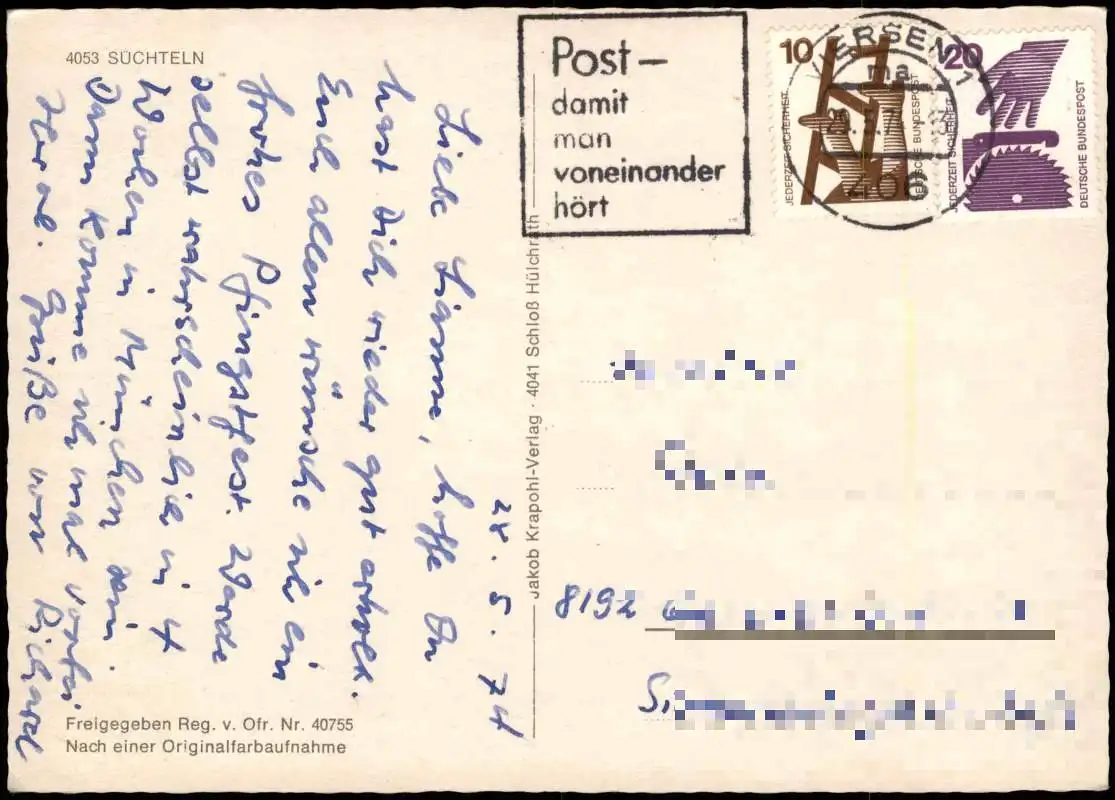 4053 SÜCHTELN
28.5.74
Liebe
hoffe Du
hast Dich wieder gut erholt.
Euch allen wünsche ich ein
frohes Pfingstfest. Werde
selbst wahrscheinlich in 4
Wochen in München sein.
Dann komme ich mal vorbei
Herzl. Grüße von Richard
Freigegeben Reg. v. Ofr. Nr. 40755
Nach einer Originalfarbaufnahme
Jakob Krapohl-Verlag · 4041 Schloß Hülchrath
Post –
damit
man
voneinander
hört
VIERSEN 1
ma
4060
10
JEDERZEIT SICHERHEIT
DEUTSCHE BUNDESPOST
20
JEDERZEIT SICHERHEIT
DEUTSCHE BUNDESPOST
8192